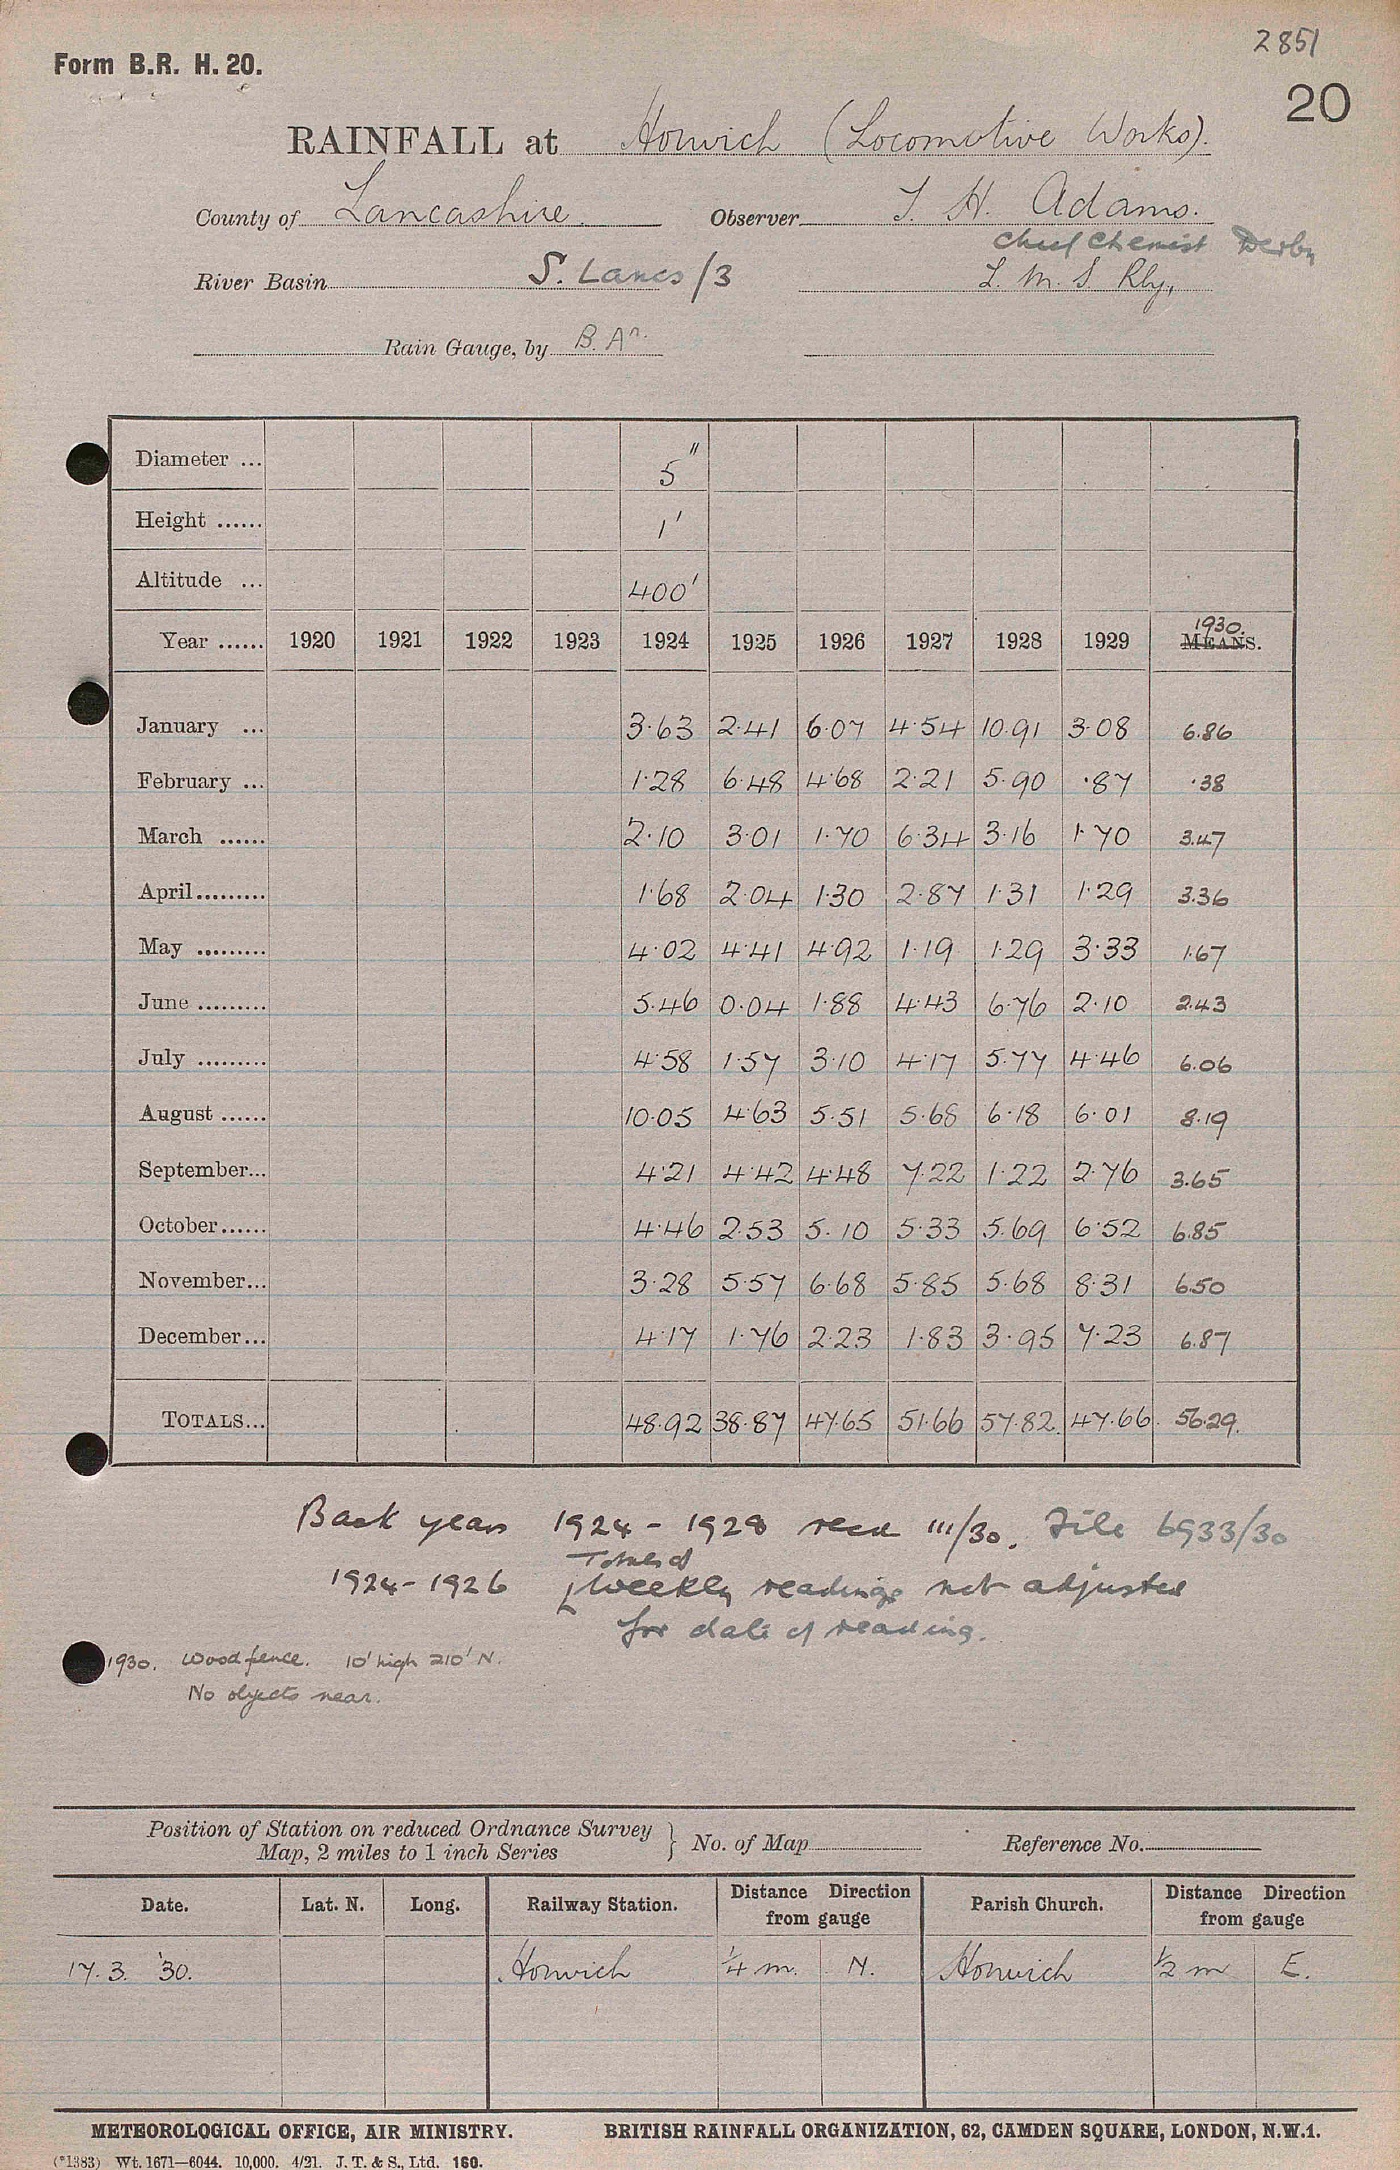 2851
Form B.R. H. 20.
20
RAINFALL at Horwich (Locomotive Works).
County of Lancashire. Observer J. H. Adams.
Chief Chemist Derby
River Basin S. Lancs/3 L. M. S. Rly,
Rain Gauge, by B. Aⁿ.
Diameter ... 5"
Height ...... 1'
Altitude ... 400'
1930.
Year ...... 1920 1921 1922 1923 1924 1925 1926 1927 1928 1929 MEANS.
January ... 3·63 2·41 6·07 4·54 10·91 3·08 6.86
February ... 1·28 6·48 4·68 2·21 5·90 ·87 ·38
March ...... 2·10 3·01 1·70 6·34 3·16 1·70 3.47
April......... 1·68 2·04 1·30 2·87 1·31 1·29 3.36
May ......... 4·02 4·41 4·92 1·19 1·29 3·33 1.67
June ......... 5·46 0·04 1·88 4·43 6·76 2·10 2.43
July ......... 4·58 1·57 3·10 4·17 5·77 4·46 6.06
August ...... 10·05 4·63 5·51 5·68 6·18 6·01 8.19
September... 4·21 4·42 4·48 7·22 1·22 2·76 3.65
October...... 4·46 2·53 5·10 5·33 5·69 6·52 6.85
November... 3·28 5·57 6·68 5·85 5·68 8·31 6.50
December... 4·17 1·76 2·23 1·83 3·95 7·23 6.87
TOTALS... 48·92 38·87 47·65 51·66 57·82 47·66 56.29.
Back years 1924 - 1928 recd 111/30. File 6933/30
Totals of
1924 - 1926 weekly readings not adjusted
for date of reading.
1930. Wood fence. 10' high 210' N.
No objects near.
Position of Station on reduced Ordnance Survey
Map, 2 miles to 1 inch Series } No. of Map Reference No.
Date. Lat. N. Long. Railway Station. Distance Direction from gauge Parish Church. Distance Direction from gauge
17. 3. '30. Horwich ¼ m. N. Horwich ½ m E.
METEOROLOGICAL OFFICE, AIR MINISTRY. BRITISH RAINFALL ORGANIZATION, 62, CAMDEN SQUARE, LONDON, N.W.1.
(*1383) Wt. 1671—6044. 10,000. 4/21. J. T. & S., Ltd. 160.